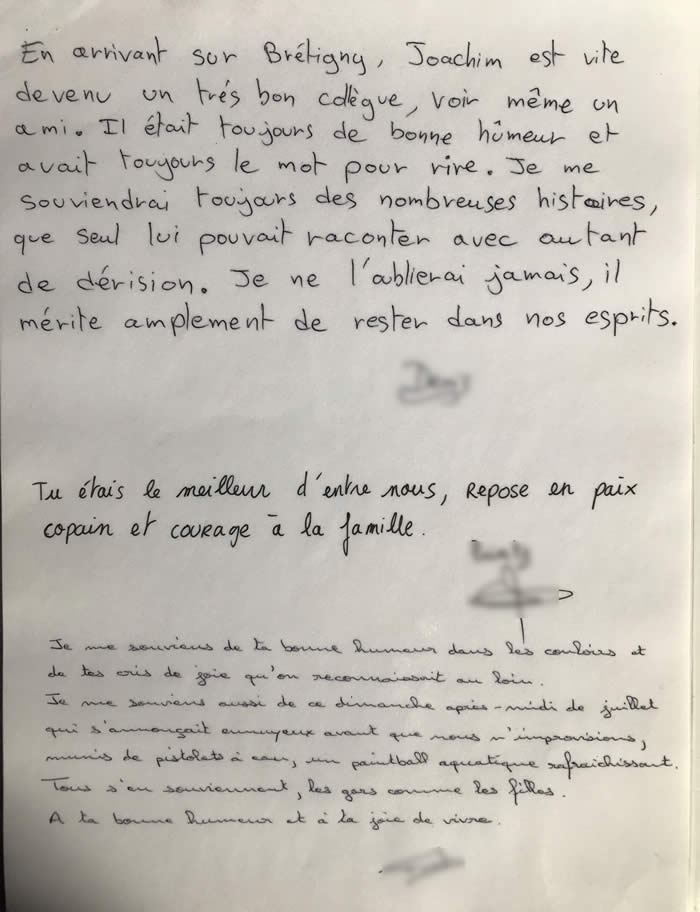 En arrivant sur Brétigny, Joachim est vite
devenu un trés bon collègue, voir même un
ami. Il était toujours de bonne hûmeur et
avait toujours le mot pour rire. Je me
souviendrai toujours des nombreuses histoires,
que seul lui pouvait raconter avec autant
de dérision. Je ne l'ablierai jamais, il
mérite amplement de rester dans nos esprits.
Tu étais le meilleur d'entre nous, repose en paix
copain et courage à la famille.
Je me souviens de ta bonne humeur dans les couloirs et
de tes cris de joie qu'on reconnaissait au loin.
Je me souviens aussi de ce dimanche après-midi de juillet
qui s'annonçait ennuyeux avant que nous n'improvisions,
munis de pistolets à eau, un paintball aquatique rafraichissant.
Tous s'en souviennent, les gars comme les filles.
A ta bonne humeur et à ta joie de vivre.